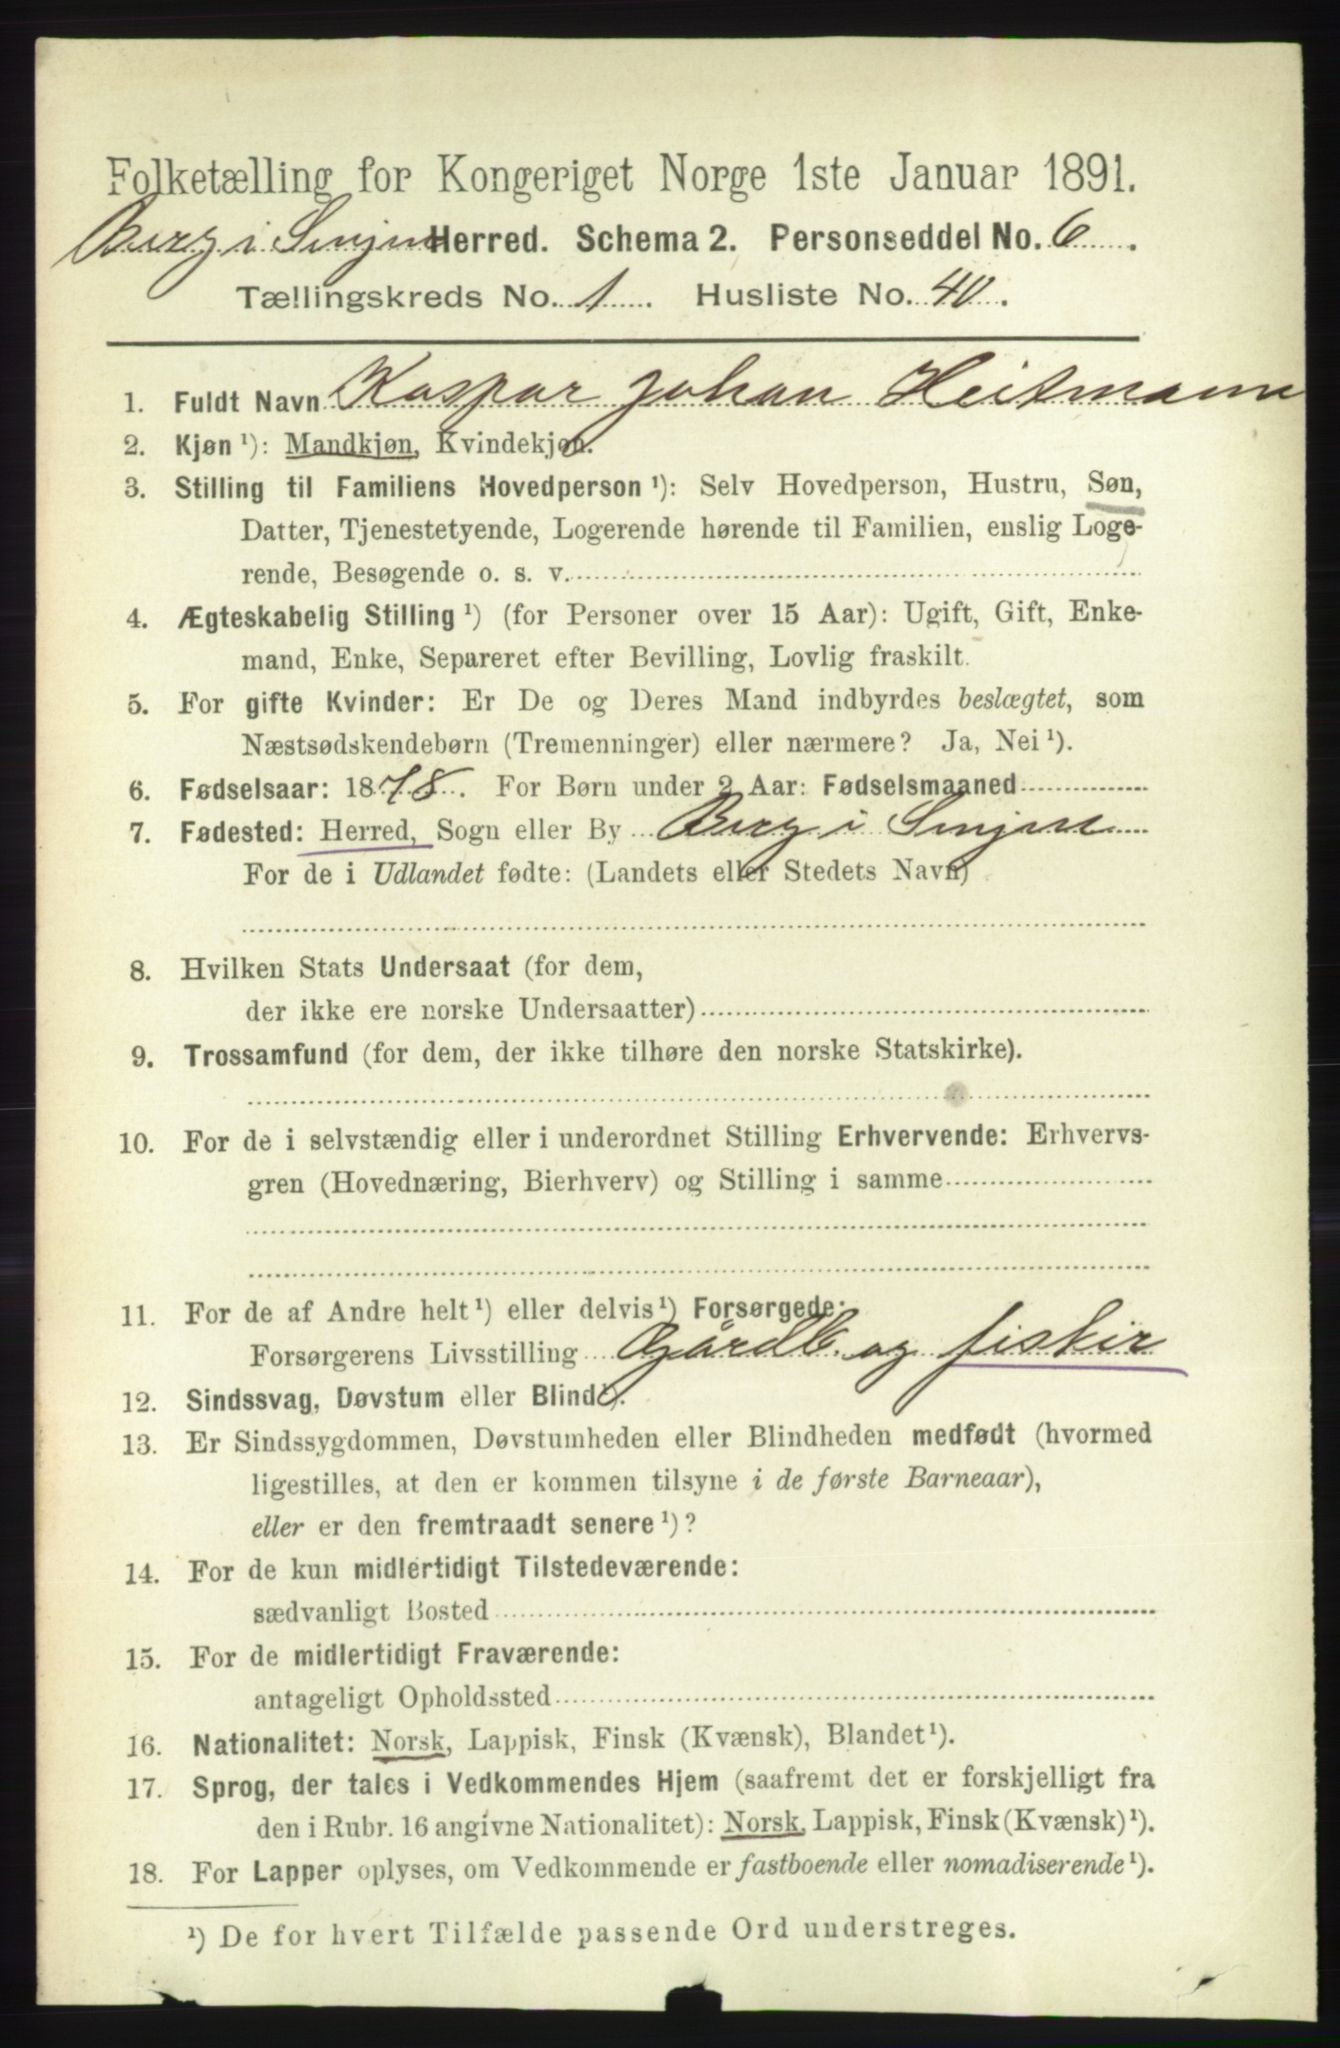 Folketælling for Kongeriget Norge 1ste Januar 1891.
Berg i Senjen Herred. Schema 2. Personseddel No. 6.
Tællingskreds No. 1. Husliste No. 40.
1. Fuldt Navn Kaspar Johan Heitmann
2. Kjøn ¹): Mandkjøn, Kvindekjøn.
3. Stilling til Familiens Hovedperson ¹): Selv Hovedperson, Hustru, Søn,
Datter, Tjenestetyende, Logerende hørende til Familien, enslig Loge-
rende, Besøgende o. s. v.
4. Ægteskabelig Stilling ¹) (for Personer over 15 Aar): Ugift, Gift, Enke-
mand, Enke, Separeret efter Bevilling, Lovlig fraskilt.
5. For gifte Kvinder: Er De og Deres Mand indbyrdes beslægtet, som
Næstsødskendebørn (Tremenninger) eller nærmere? Ja, Nei ¹).
6. Fødselsaar: 1878. For Børn under 2 Aar: Fødselsmaaned
7. Fødested: Herred, Sogn eller By Berg i Senjen
For de i Udlandet fødte: (Landets eller Stedets Navn)
8. Hvilken Stats Undersaat (for dem,
der ikke ere norske Undersaatter)
9. Trossamfund (for dem, der ikke tilhøre den norske Statskirke).
10. For de i selvstændig eller i underordnet Stilling Erhvervende: Erhvervs-
gren (Hovednæring, Bierhverv) og Stilling i samme
11. For de af Andre helt ¹) eller delvis ¹) Forsørgede:
Forsørgerens Livsstilling Gårdb. og fisker
12. Sindssvag, Døvstum eller Blind ¹).
13. Er Sindssygdommen, Døvstumheden eller Blindheden medfødt (hvormed
ligestilles, at den er kommen tilsyne i de første Barneaar),
eller er den fremtraadt senere ¹)?
14. For de kun midlertidigt Tilstedeværende:
sædvanligt Bosted
15. For de midlertidigt Fraværende:
antageligt Opholdssted
16. Nationalitet: Norsk, Lappisk, Finsk (Kvænsk), Blandet ¹).
17. Sprog, der tales i Vedkommendes Hjem (saafremt det er forskjelligt fra
den i Rubr. 16 angivne Nationalitet): Norsk, Lappisk, Finsk (Kvænsk) ¹).
18. For Lapper oplyses, om Vedkommende er fastboende eller nomadiserende ¹).
¹) De for hvert Tilfælde passende Ord understreges.